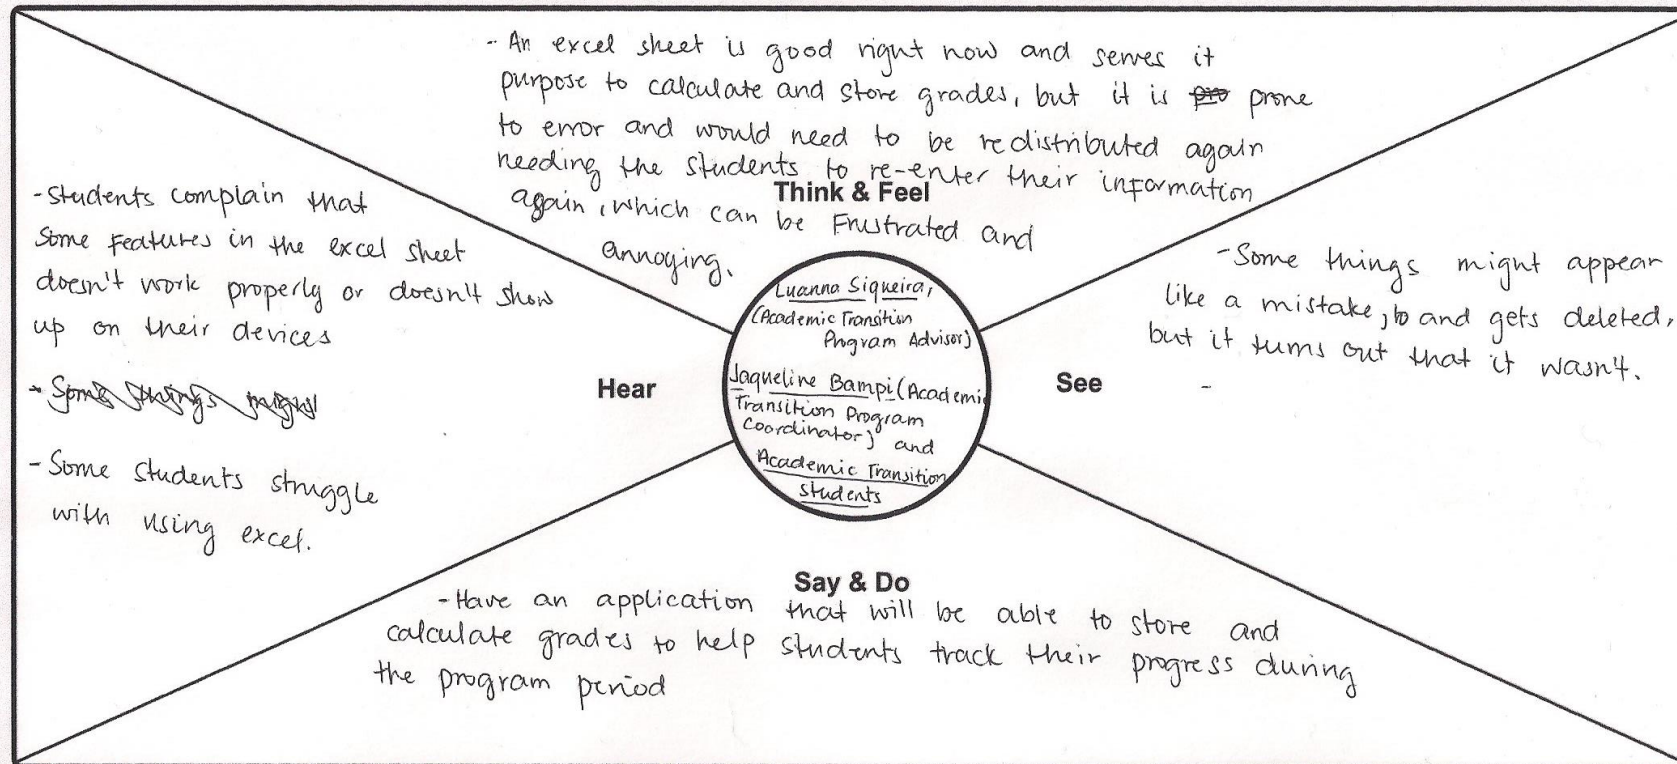 - An excel sheet is good right now and serves it
purpose to calculate and store grades, but it is pro prone
to error and would need to be redistributed again
needing the students to re-enter their information
again, which can be Frustrated and
annoying.
Think & Feel
- Students complain that
some features in the excel sheet
doesn't work properly or doesn't show
up on their devices
- Some things might
- Some students struggle
with using excel.
Hear
Luanna Siqueira,
(Academic Transition
Program Advisor)
Jaqueline Bampi (Academic
Transition Program
Coordinator) and
Academic Transition
Students
See
- Some things might appear
like a mistake, to and gets deleted,
but it turns out that it wasn't.
-
Say & Do
- Have an application that will be able to store and
calculate grades to help students track their progress during
the program period